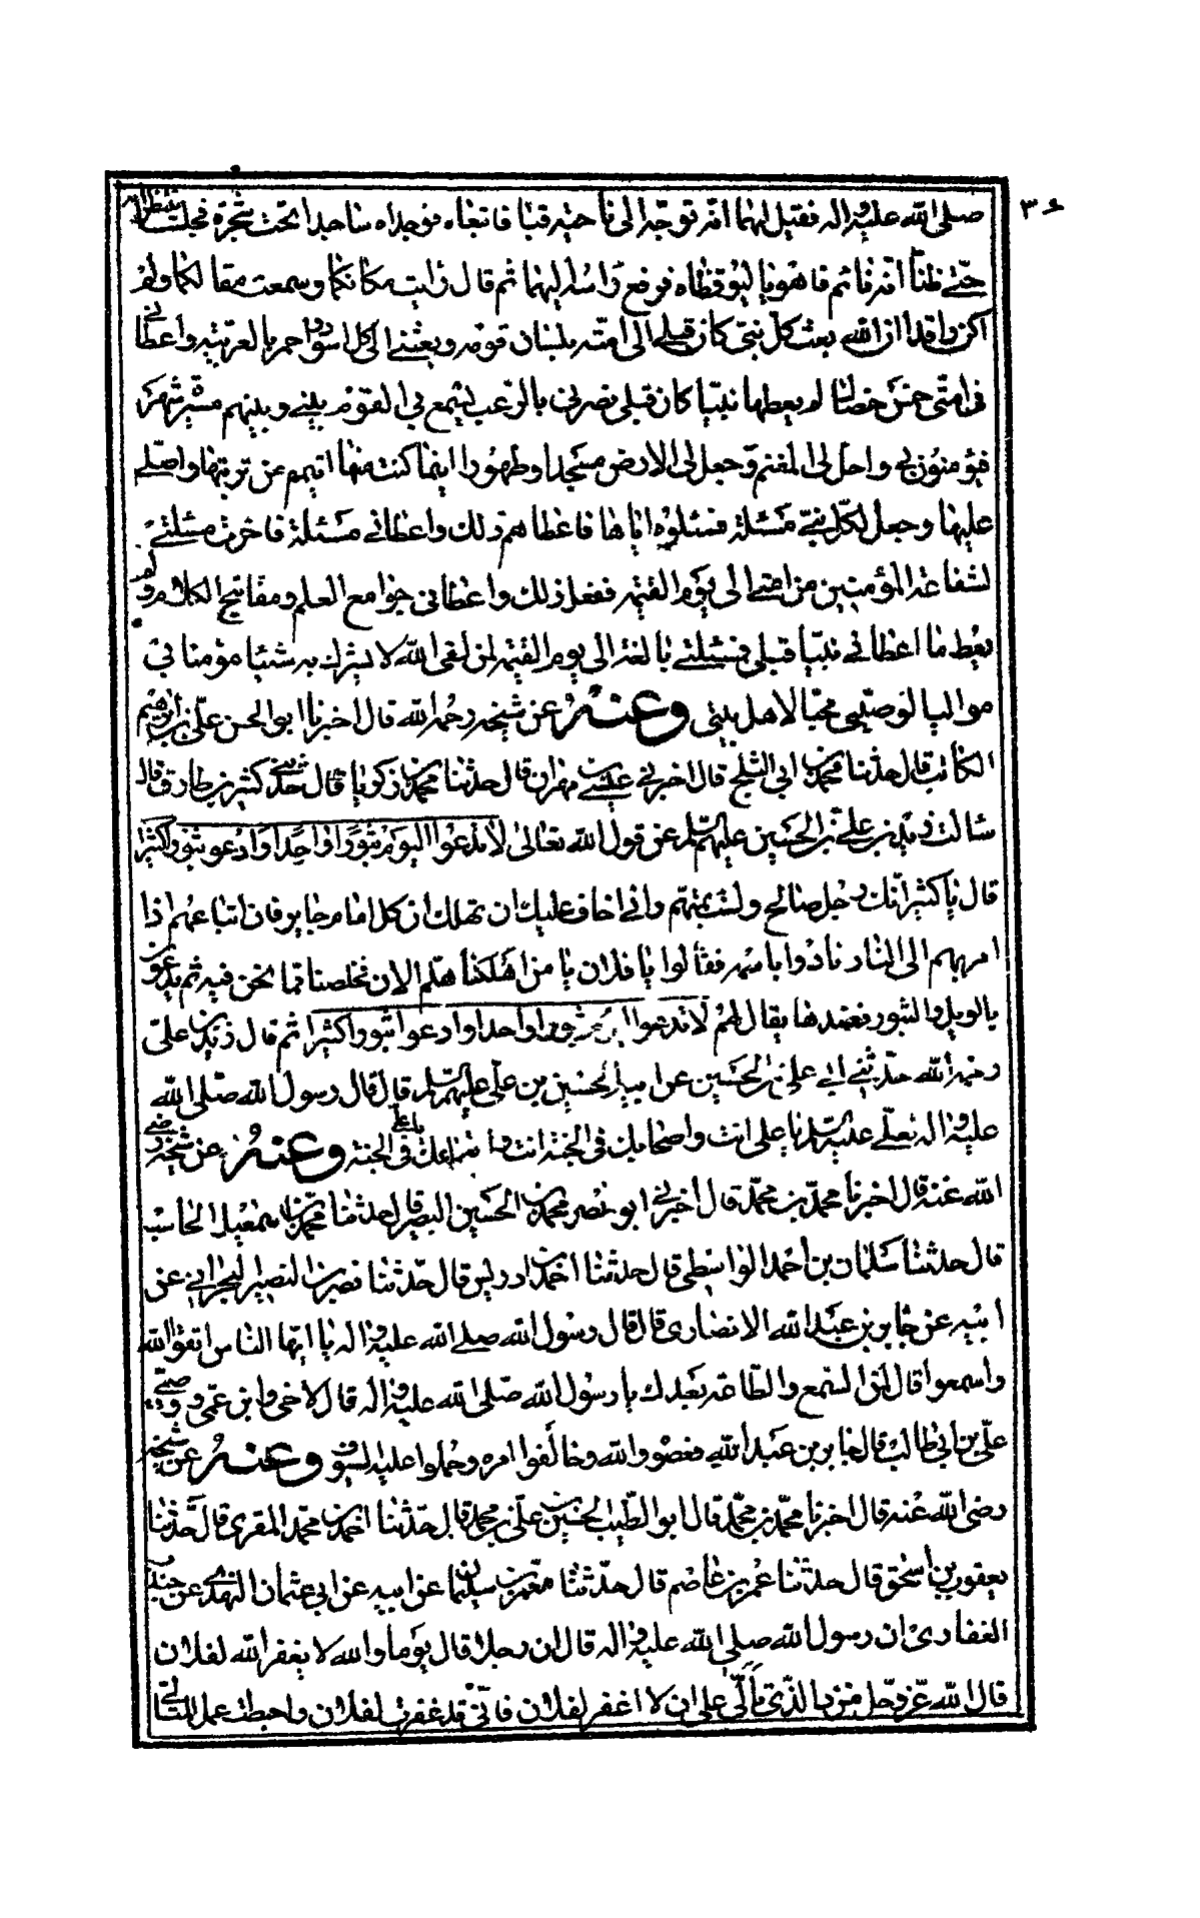 ٣٤
صلى الله عليه واله فقيل لهما انه توجه الى ناحية قبا فاتبعاه فوجداه ساجدا تحت شجرة فجلسا ينتظرانه
حتى ظنا انه نائم فاهويا ليوقظاه فرفع راسه اليهما ثم قال رايت مكانكما وسمعت مقالتكما ولم
اكن راقدا ان الله بعث كل نبي كان قبلي الى امته بلسان قومه وبعثني الى كل اسود واحمر بالعربية واعطاني
في امتي خمس خصال لم يعطها نبيا كان قبلي نصرني بالرعب ليسمع بي القوم بيني وبينهم مسيرة شهر
فيؤمنون بي واحل لي المغنم وجعل لي الارض مسجدا وطهورا اينما كنت منها اتيمم من تربتها واصلي
عليها وجعل لكل نبي مسئلة فسئلوه اياها فاعطاهم ذلك واعطاني مسئلة فاخرت مسئلتي
لشفاعة المؤمنين من امتي الى يوم القيمة ففعل ذلك واعطاني جوامع العلم ومفاتيح الكلام ولم
يعط ما اعطاني نبيا قبلي فمسئلتي بالغة الى يوم القيمة لمن لقى الله لا يشرك به شيئا مؤمنا بي
مواليا لوصيي محبا لاهل بيتي وعنه عن شيخه رحمه الله قال اخبرنا ابو الحسن علي بن ابراهيم
الكاتب قال حدثنا محمد بن ابي الثلج قال اخبرني عيسى بن مهران قال حدثنا محمد بن زكريا قال حدثني كثير بن طارق قال
سالت زيد بن علي بن الحسين عليهم السلم عن قول الله تعالى لا تدعوا اليوم ثبورا واحدا وادعوا ثبورا كثيرا
قال يا كثير انك رجل صالح ولست بمتهم واني اخاف عليك ان تهلك ان كل امام جاير فان اتباعهم اذا
امر بهم الى النار نادوا باسمه فقالوا يا فلان يا من اهلكنا هلم الان فخلصنا مما نحن فيه ثم يدعون
بالويل والثبور فعندها يقال لهم لا تدعوا اليوم ثبورا واحدا وادعوا ثبورا كثيرا ثم قال زيد بن علي
رحمه الله حدثني ابي علي بن الحسين عن ابيه الحسين بن علي عليهم السلم قال قال رسول الله صلى الله
عليه واله لعلي عليه السلم يا علي انت واصحابك في الجنة انت واتباعك يا علي في الجنة وعنه عن شيخه رضي
الله عنه قال اخبرنا محمد بن محمد قال اخبرني ابو نصر محمد بن الحسين البصير قال حدثنا محمد بن اسمعيل الحاسب
قال حدثنا سلمان بن احمد الواسطي قال حدثنا احمد بن ادريس قال حدثنا نصر بن النصير البحراني عن
ابيه عن جابر بن عبد الله الانصاري قال قال رسول الله صلى الله عليه واله يا ايها الناس اتقوا الله
واسمعوا قال لمن السمع والطاعة بعدك يا رسول الله صلى الله عليه واله قال لاخي وابن عمي ووصيي
علي بن ابي طالب قال جابر بن عبد الله فعصوه والله وخالفوا امره وحملوا عليه السيوف وعنه عن شيخه
رضى الله عنه قال اخبرنا محمد بن محمد قال ابو الطيب الحسين بن علي بن محمد قال حدثنا احمد بن محمد المقري قال حدثنا
يعقوب بن اسحق قال حدثنا عمر بن عاصم قال حدثنا معمر بن سليمان عن ابيه عن ابي عثمان النهدي عن جندب
الغفاري ان رسول الله صلى الله عليه واله قال ان رجلا قال يوما والله لا يغفر الله لفلان
قال الله عز وجل من ذا الذي تالى علي ان لا اغفر لفلان فاني قد غفرت لفلان واحبطت عمل المتالي